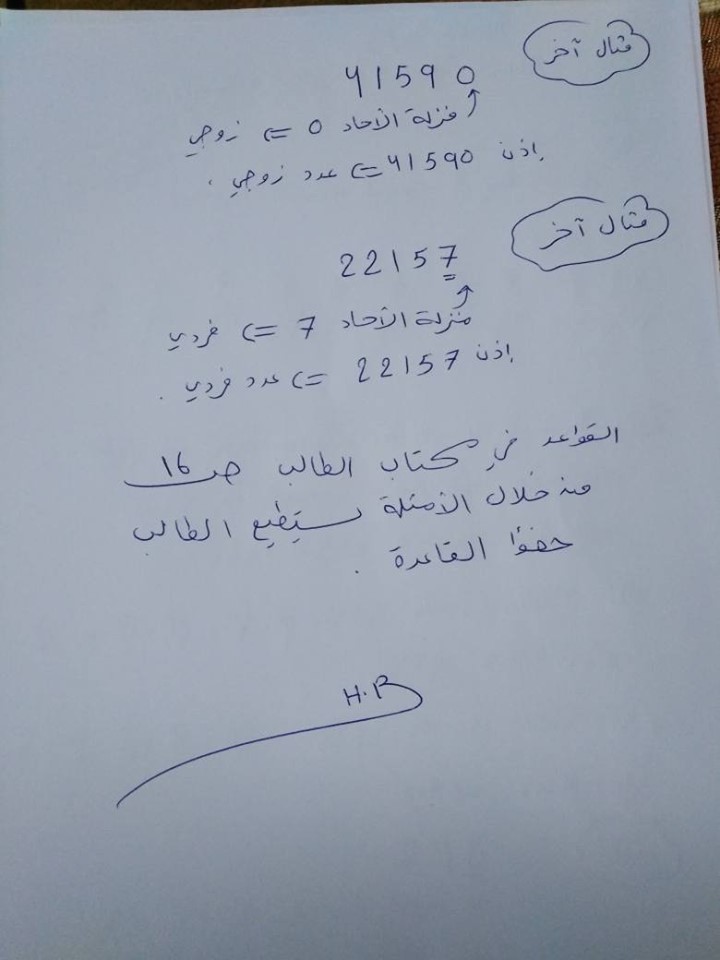 مثال آخر
41590
منزلة الآحاد 0 => زوجي
إذن 41590 => عدد زوجي .
مثال آخر
22157
منزلة الآحاد 7 => فردي
إذن 22157 => عدد فردي .
القواعد في كتاب الطالب ص 16
من خلال الأمثلة يستطيع الطالب
حفظ القاعدة .
H.B